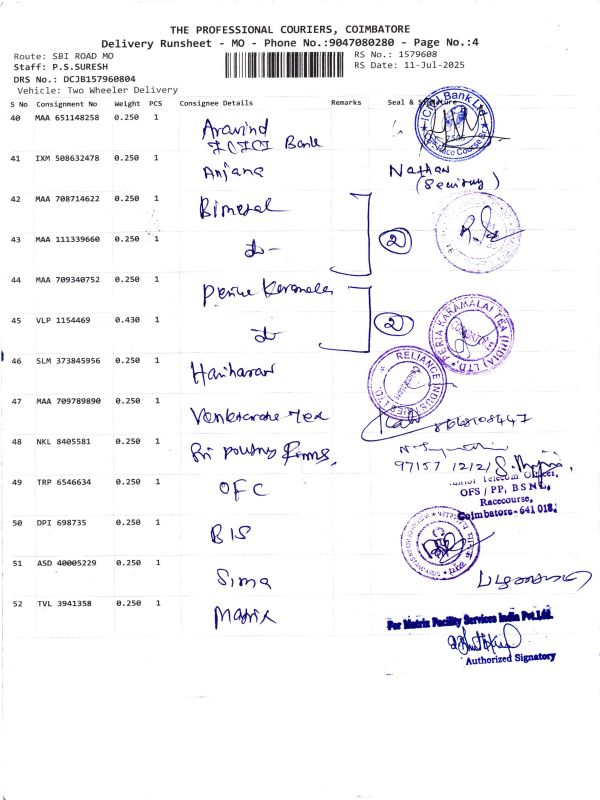 THE PROFESSIONAL COURIERS, COIMBATORE
Delivery Runsheet - MO - Phone No.:9047080280 - Page No.:4
Route: SBI ROAD MO RS No.: 1579608
Staff: P.S.SURESH RS Date: 11-Jul-2025
DRS No.: DCJB157960804
Vehicle: Two Wheeler Delivery
S No Consignment No Weight PCS Consignee Details Remarks Seal & Signature
40 MAA 651148258 0.250 1 Aravind
ICICI Bank
41 IXM 508632478 0.250 1 Anjana Nathan
(Security)
42 MAA 708714622 0.250 1 Bimetal
43 MAA 111339660 0.250 1 do- 2
44 MAA 709340752 0.250 1 Karamalai
45 VLP 1154469 0.430 1 do 2
PERIA KARAMALAI TEA (INDIA) LTD
46 SLM 373845956 0.250 1 Hariharan
RELIANCE INDUSTRIES LTD
47 MAA 709789890 0.250 1 Tex
48 NKL 8405581 0.250 1 Sri Poultry Farms
97157 12121
49 TRP 6546634 0.250 1 OFC
Junior Telecom Officer,
OFS / PP, BSNL,
Racecourse,
Coimbatore - 641 018.
50 DPI 698735 0.250 1 BIS
51 ASD 40005229 0.250 1 Sima
52 TVL 3941358 0.250 1 Matrix
For Matrix Facility Services India Pvt.Ltd.
Authorized Signatory